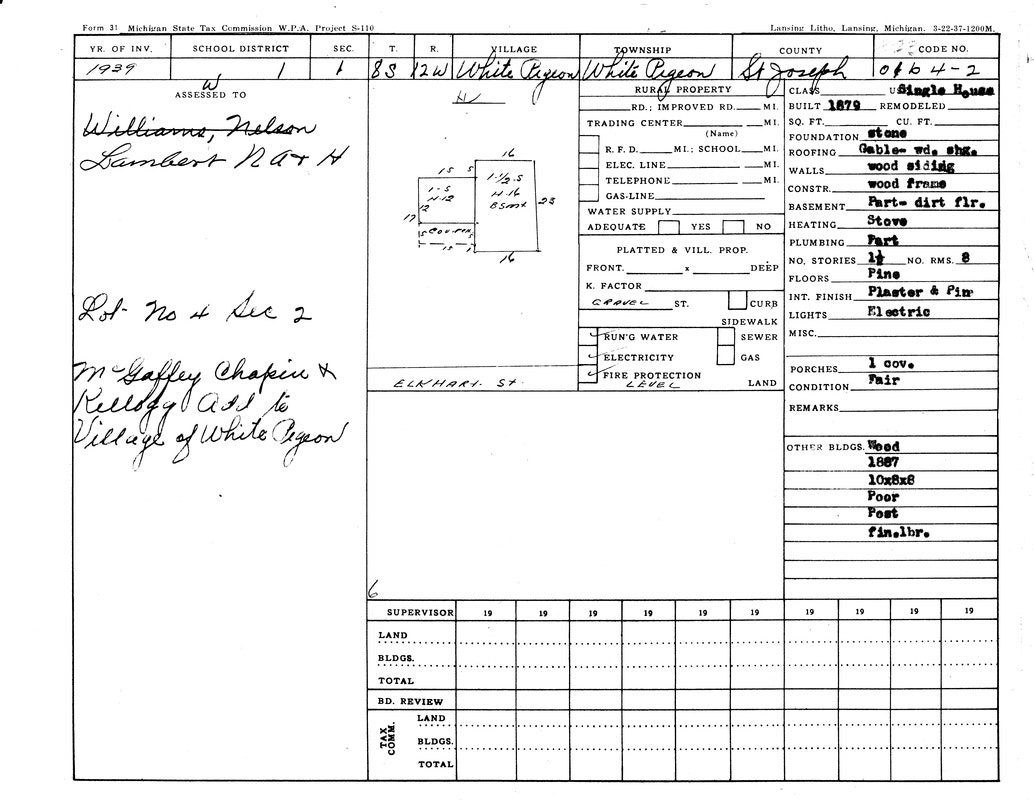 Form 31 Michigan State Tax Commission W.P.A. Project S-110
Lansing Litho, Lansing, Michigan. 3-22-37-1200M.
YR. OF INV. SCHOOL DISTRICT SEC. T. R. VILLAGE TOWNSHIP COUNTY CODE NO.
1939 W 1 1 8S 12W White Pigeon White Pigeon St Joseph
ASSESSED TO
Williams, Nelson
Lambert N A & H
Lot No 4 Sec 2
McGaffey Chapin &
Kellogg Add to
Village of White Pigeon
16
15 5
1-S
H-12
12
17
1-1/2 S
H-16
BSmt
23
5 5
15 1
16
ELKHART. St.
6
RURAL PROPERTY
RD.; IMPROVED RD. MI.
TRADING CENTER MI.
(Name)
R. F. D. MI.; SCHOOL MI.
ELEC. LINE MI.
TELEPHONE MI.
GAS-LINE
WATER SUPPLY
ADEQUATE YES NO
PLATTED & VILL. PROP.
FRONT. x DEEP
K. FACTOR
GRAVEL ST. CURB
SIDEWALK
RUN'G WATER SEWER
ELECTRICITY GAS
FIRE PROTECTION
LEVEL LAND
CLASS Single House
BUILT 1879 REMODELED
SQ. FT. CU. FT.
FOUNDATION stone
ROOFING Gable- wd. shg.
WALLS wood siding
CONSTR. wood frame
BASEMENT Part- dirt flr.
HEATING Stove
PLUMBING Part
NO. STORIES 1½ NO. RMS. 8
FLOORS Pine
INT. FINISH Plaster & Pin
LIGHTS Electric
MISC.
PORCHES 1 cov.
CONDITION Fair
REMARKS
OTHER BLDGS. Wood
1887
10x8x8
Poor
Post
fin.lbr.
SUPERVISOR 19 19 19 19 19 19 19 19 19 19
LAND
BLDGS.
TOTAL
BD. REVIEW
TAX COMM.
LAND
BLDGS.
TOTAL